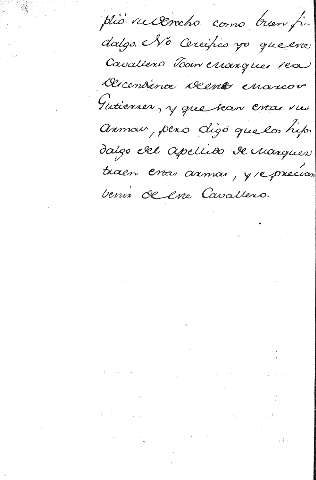 plió su derecho como buen fi-
dalgo. No Certifico yo que este
Cavallero Juan Marques sea
descendiente de este Marcos
Gutierrez, y que sean estas sus
armas, pero digo que los hijos
dalgo del Apellido de Marques
traen estas armas, y se precian
venir de este Cavallero.